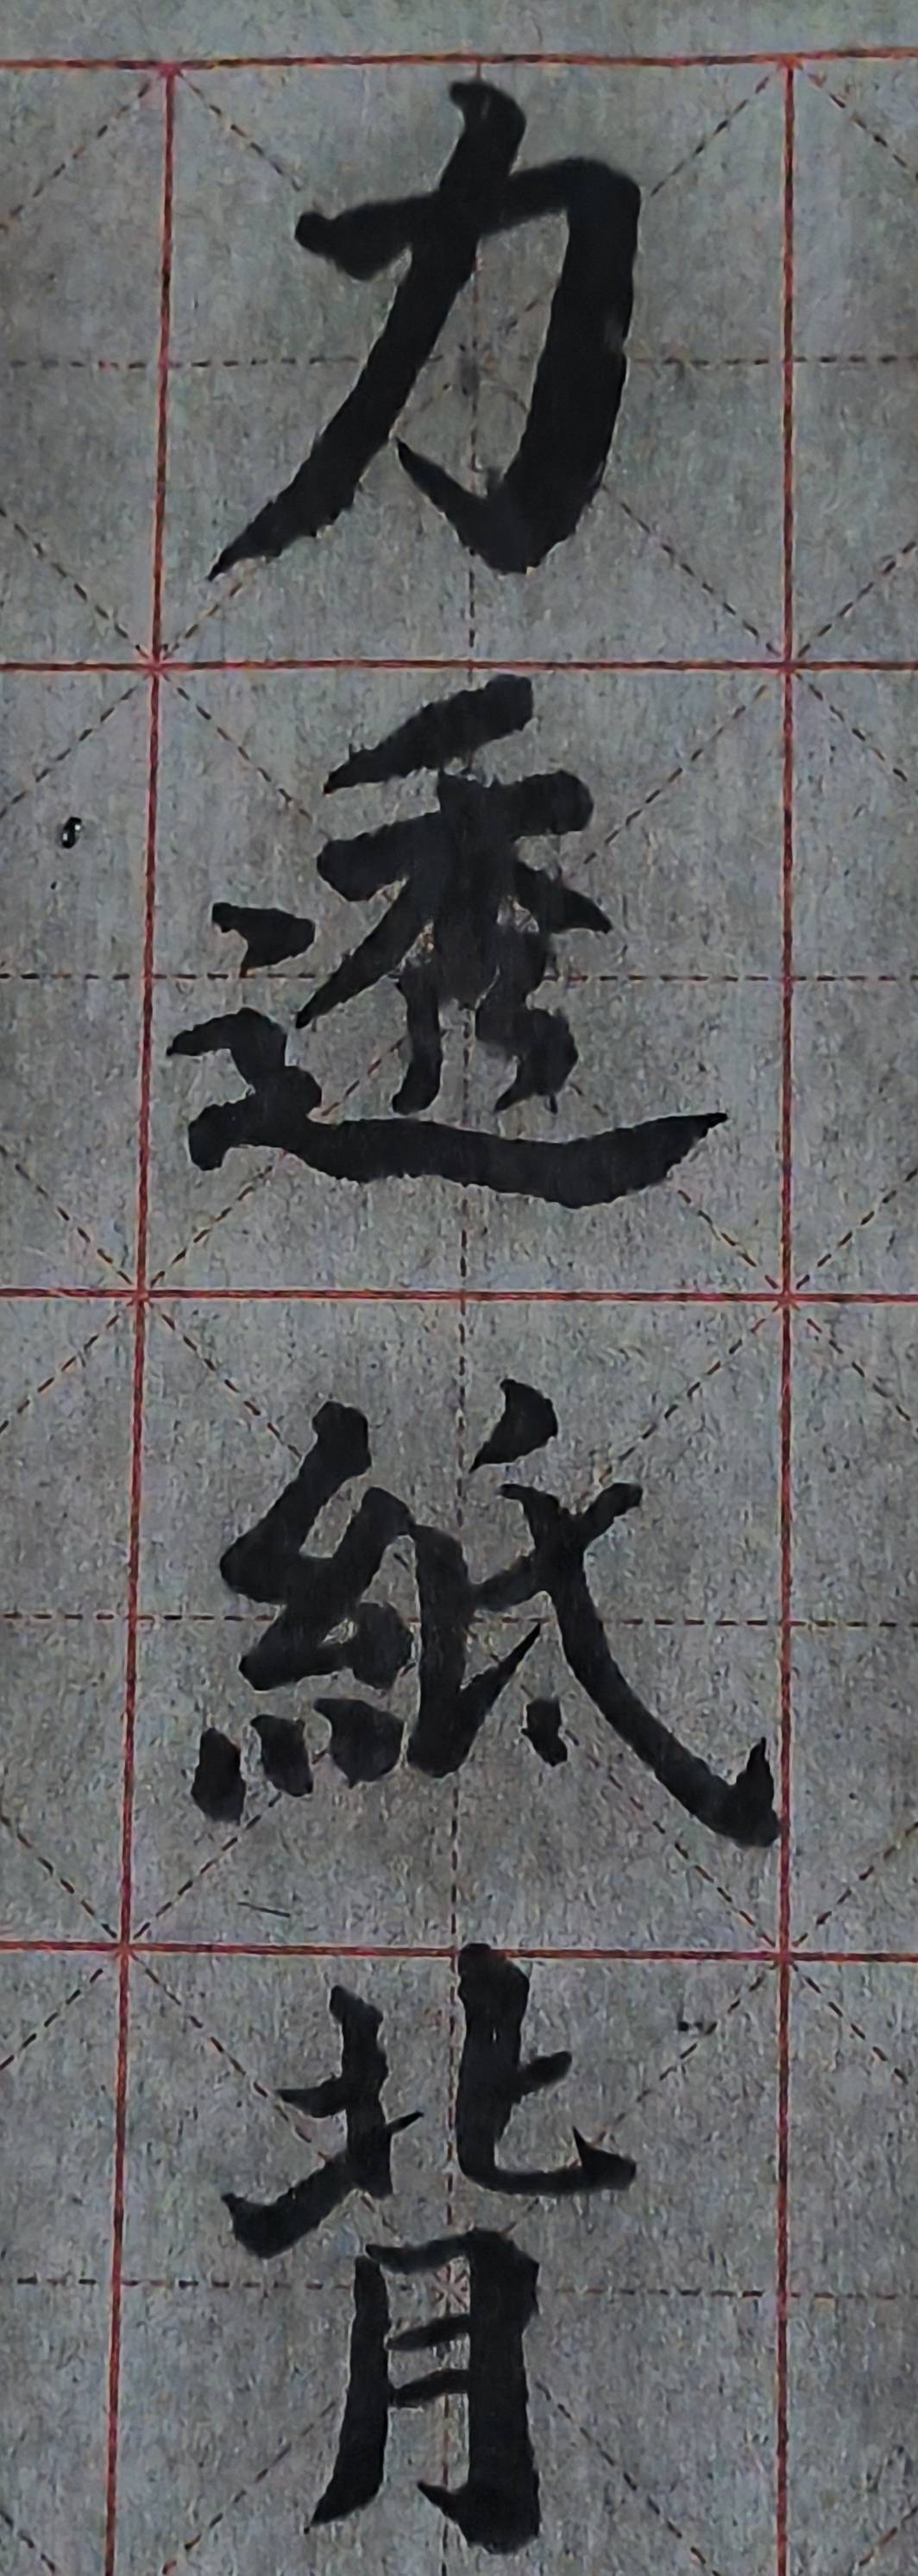 力透紙背